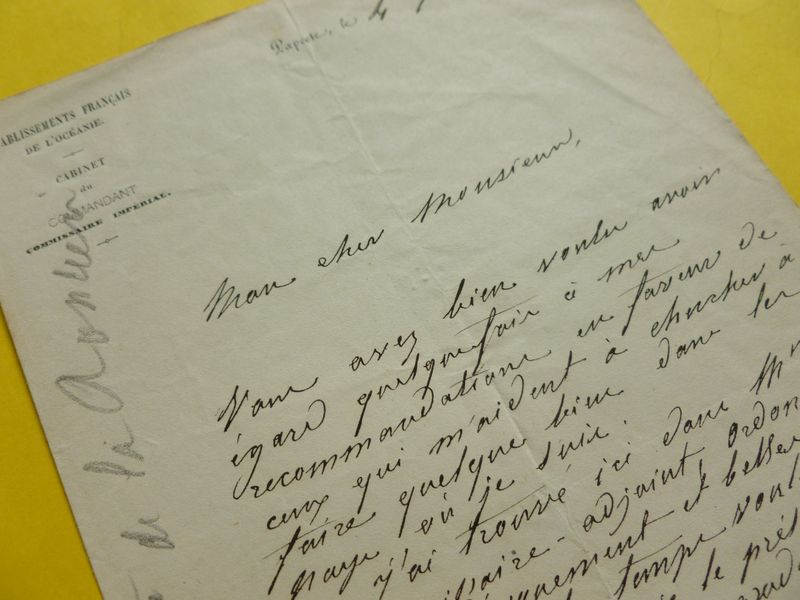 Papeete, le 4
ABLISSEMENTS FRANÇAIS
DE L'OCÉANIE.
CABINET
du
COMMANDANT
COMMISSAIRE IMPÉRIAL.
Mon cher Monsieur,
Vous avez bien voulu avoir
égard quelquefois à mes
recommandations en faveur de
ceux qui m'aident à chercher à
faire quelque bien dans les
pays où je suis.
J'ai trouvé ici dans Mr
aire-adjoint, ordon
et belles
temps voul
le prés
de la